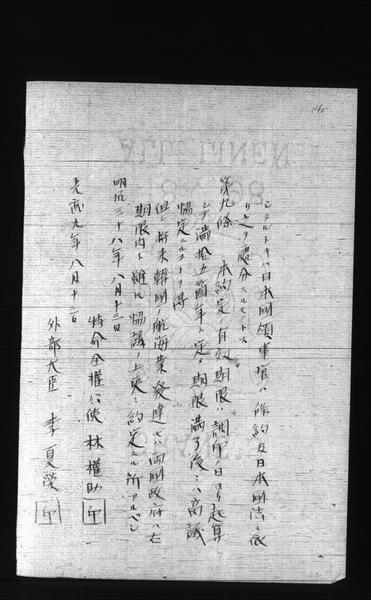 シタルトキハ日本国領事官ハ条約及日本国法ニ依
リ之ヲ処分スルモノトス
第九條 本約定ノ有効期限ハ調印ノ日ヨリ起算
シテ満拾五箇年ト定メ期限満了後ニハ商議
協定スルコトヲ得
但シ将来韓国ノ航海業発達セハ両国政府ハ右
期限内ト雖ルモ協議ノ上更ニ約定スル所アルベシ
明治三十八年八月十三日
特命全權公使 林權助 印
光武九年八月十三日
外部大臣 李夏榮 印